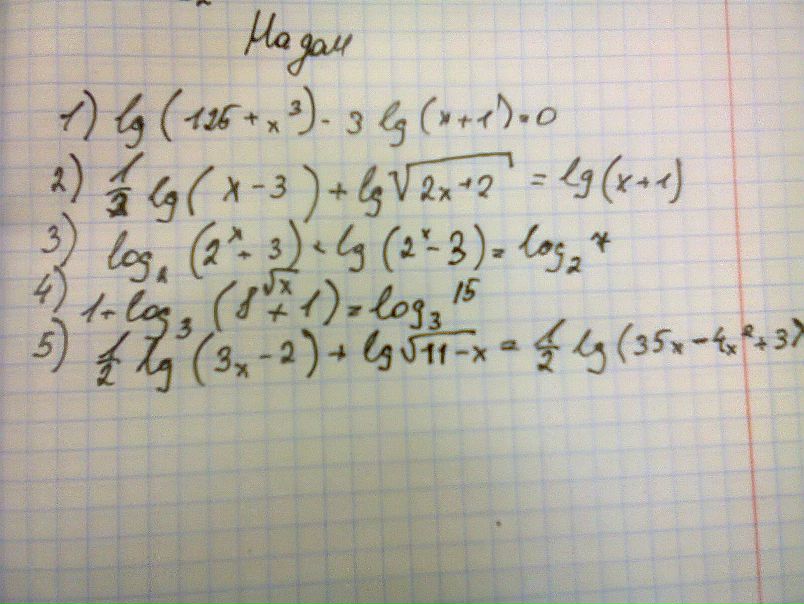 На дом
1) lg (125 + x³) - 3 lg (x+1) = 0
2) 1/2 lg (x - 3) + lg √(2x+2) = lg (x+1)
3) (2ˣ + 3) + lg (2ˣ - 3) = log₂
4) 1 + log₃ (8^√x + 1) = log₃ 15
5) 1/2 lg (3x - 2) + lg √(11 - x) = 1/2 lg (35x - 4x² + 3)